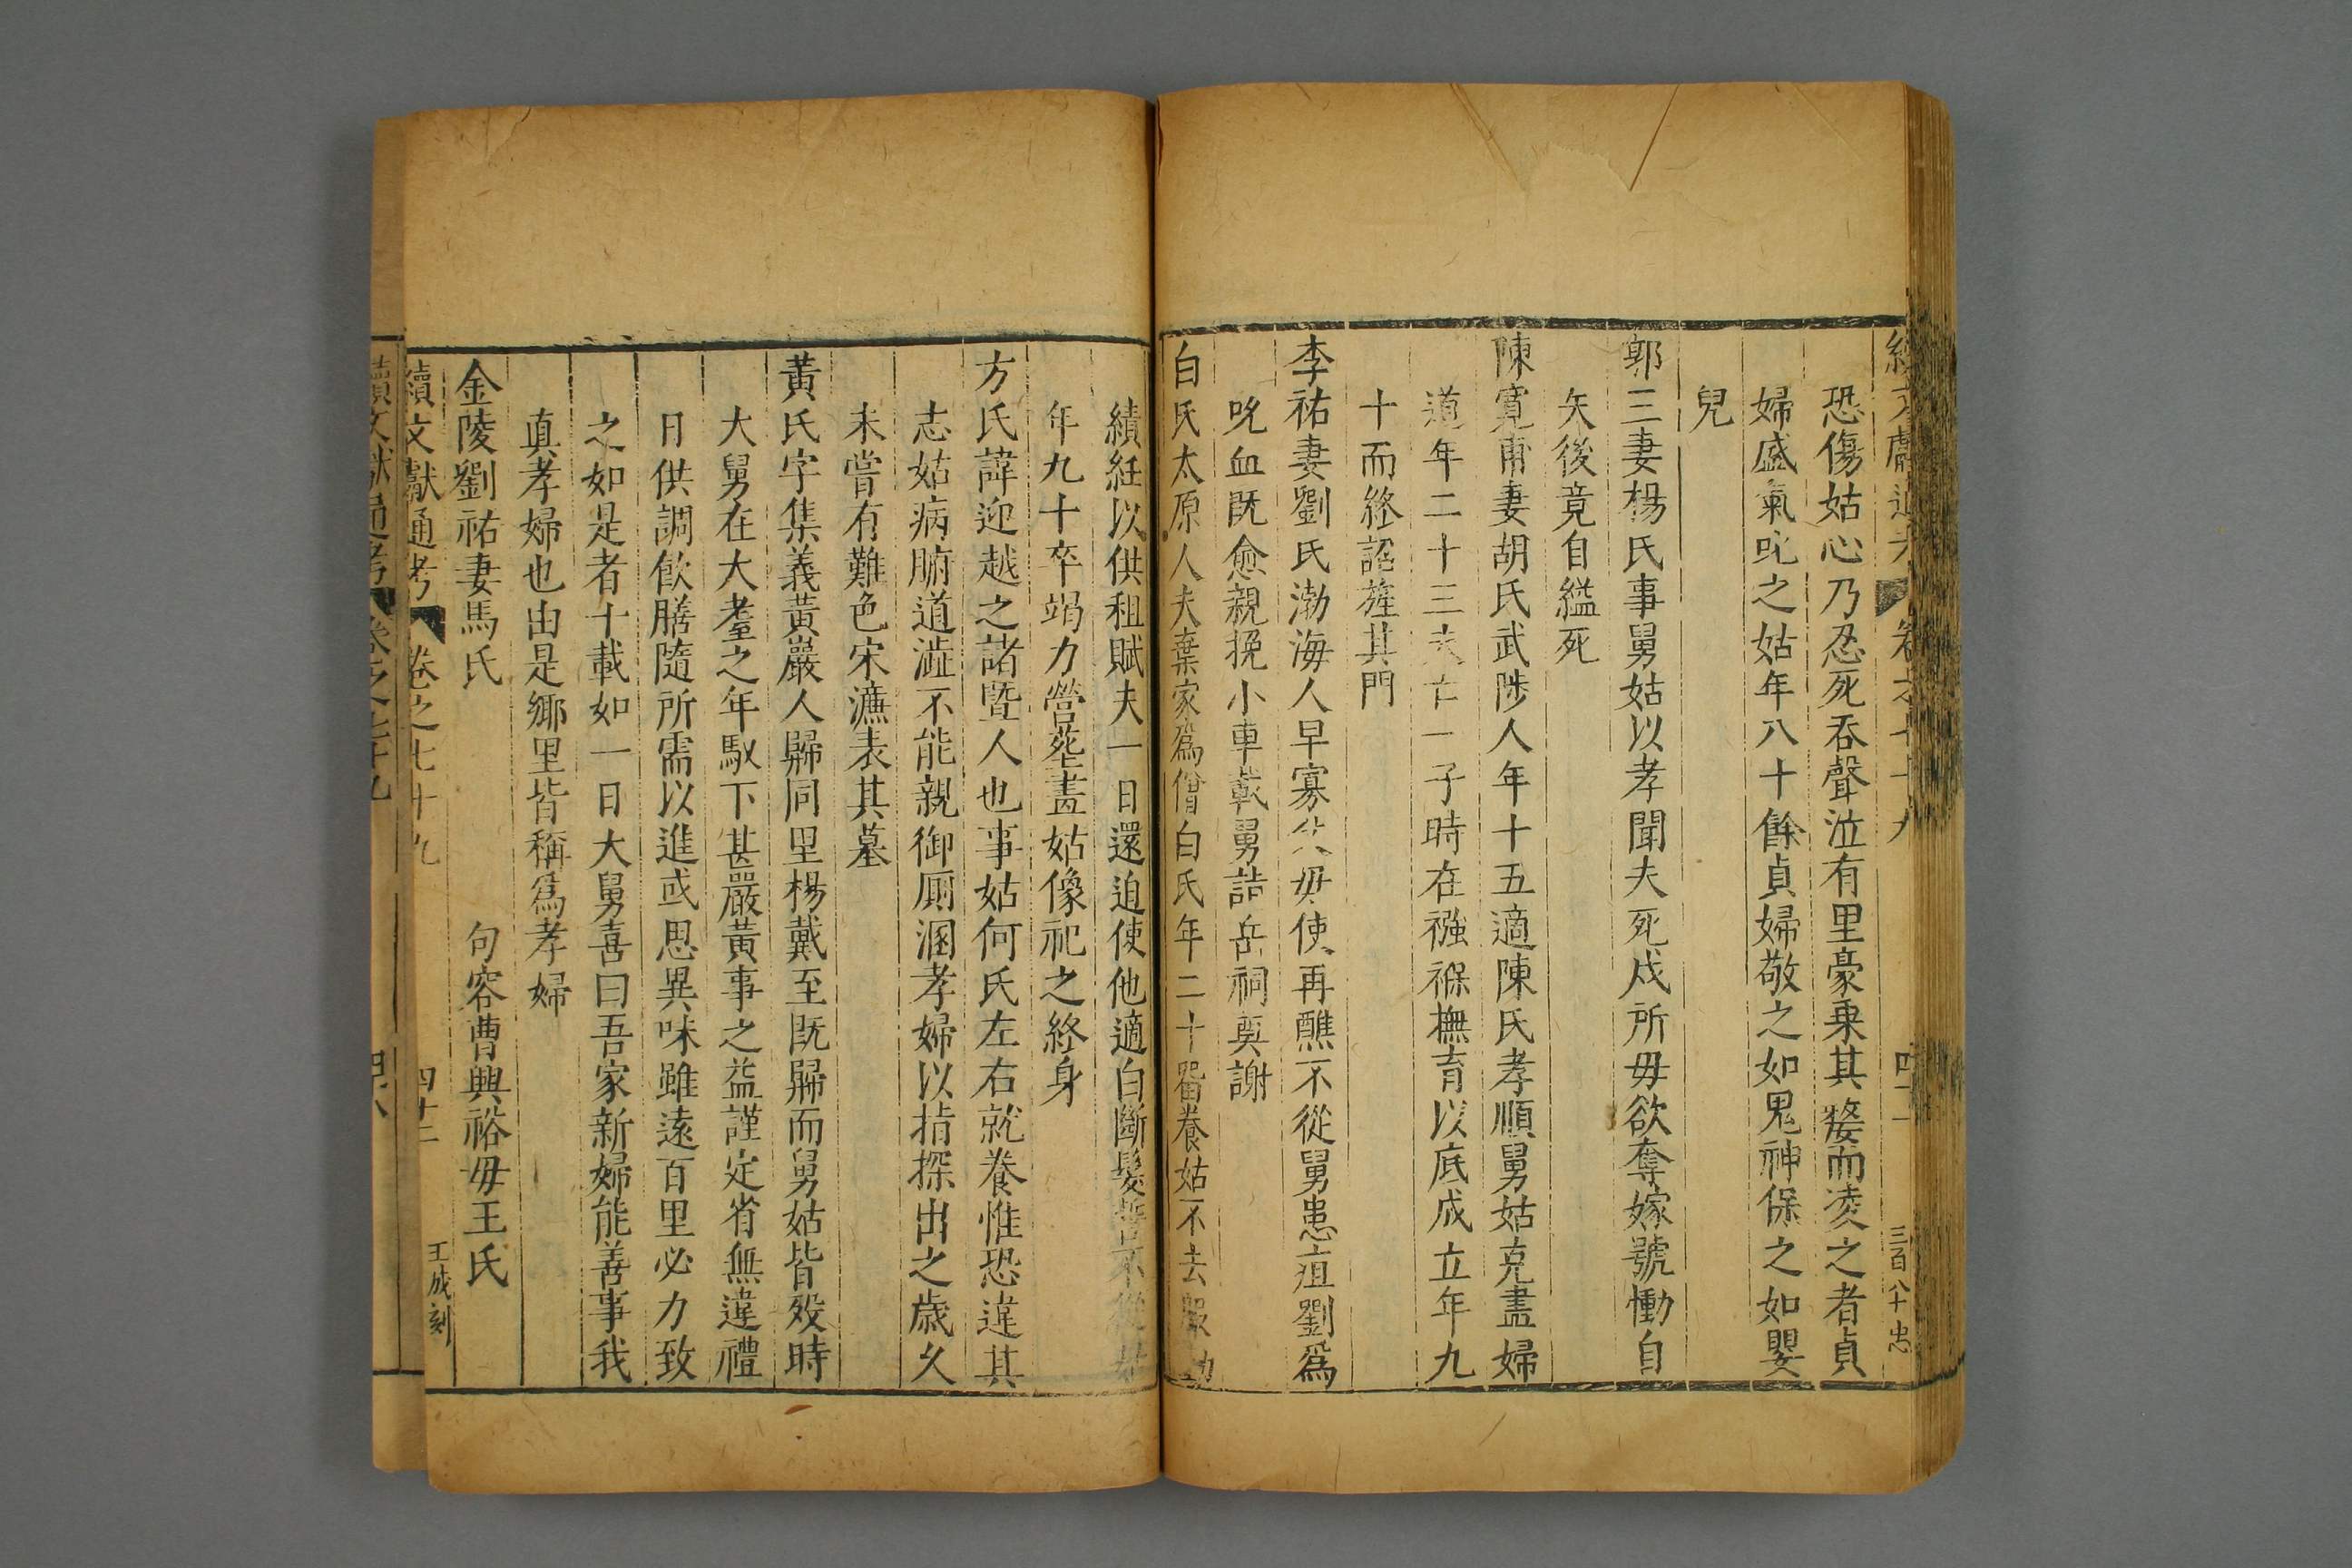 續文獻通考 卷之七十九 四十一 三百八十 忠
恐傷姑心乃忍死吞聲泣有里豪乗其㛐而凌之者貞
婦盛氣叱之姑年八十餘貞婦敬之如鬼神保之如嬰
兒
郭三妻楊氏事舅姑以孝聞夫死戍所毋欲奪嫁號慟自
矢後竟自縊死
陳寛甫妻胡氏武陟人年十五適陳氏孝順舅姑克盡婦
道年二十三夫亡一子時在襁褓撫育以底成立年九
十而終詔旌其門
李祐妻劉氏渤海人早寡父毋使再醮不從舅患疽劉爲
吮血既愈親挽小車載舅詣岳祠奠謝
白氏太原人夫棄家爲僧白氏年二十留養姑不去服勤
績紝以供租賦夫一日還迫使他適白斷髮誓不從姑
年九十卒竭力營塟畫姑像祀之終身
方氏諱迎越之諸曁人也事姑何氏左右就養惟恐違其
志姑病腑道澁不能親御厠溷孝婦以指探出之歲久
未嘗有難色宋濂表其墓
黃氏字集義黃巖人歸同里楊戴至既歸而舅姑皆歿時
大舅在大耋之年馭下甚嚴黃事之益謹定省無違禮
日供調飲膳隨所需以進或思異味雖遠百里必力致
之如是者十載如一日大舅喜曰吾家新婦能善事我
真孝婦也由是鄉里皆稱爲孝婦
金陵劉祐妻馬氏 句容曹興裕毋王氏
續文獻通考 卷之七十九 四十二 王成刻
續文獻通考 卷之七十九